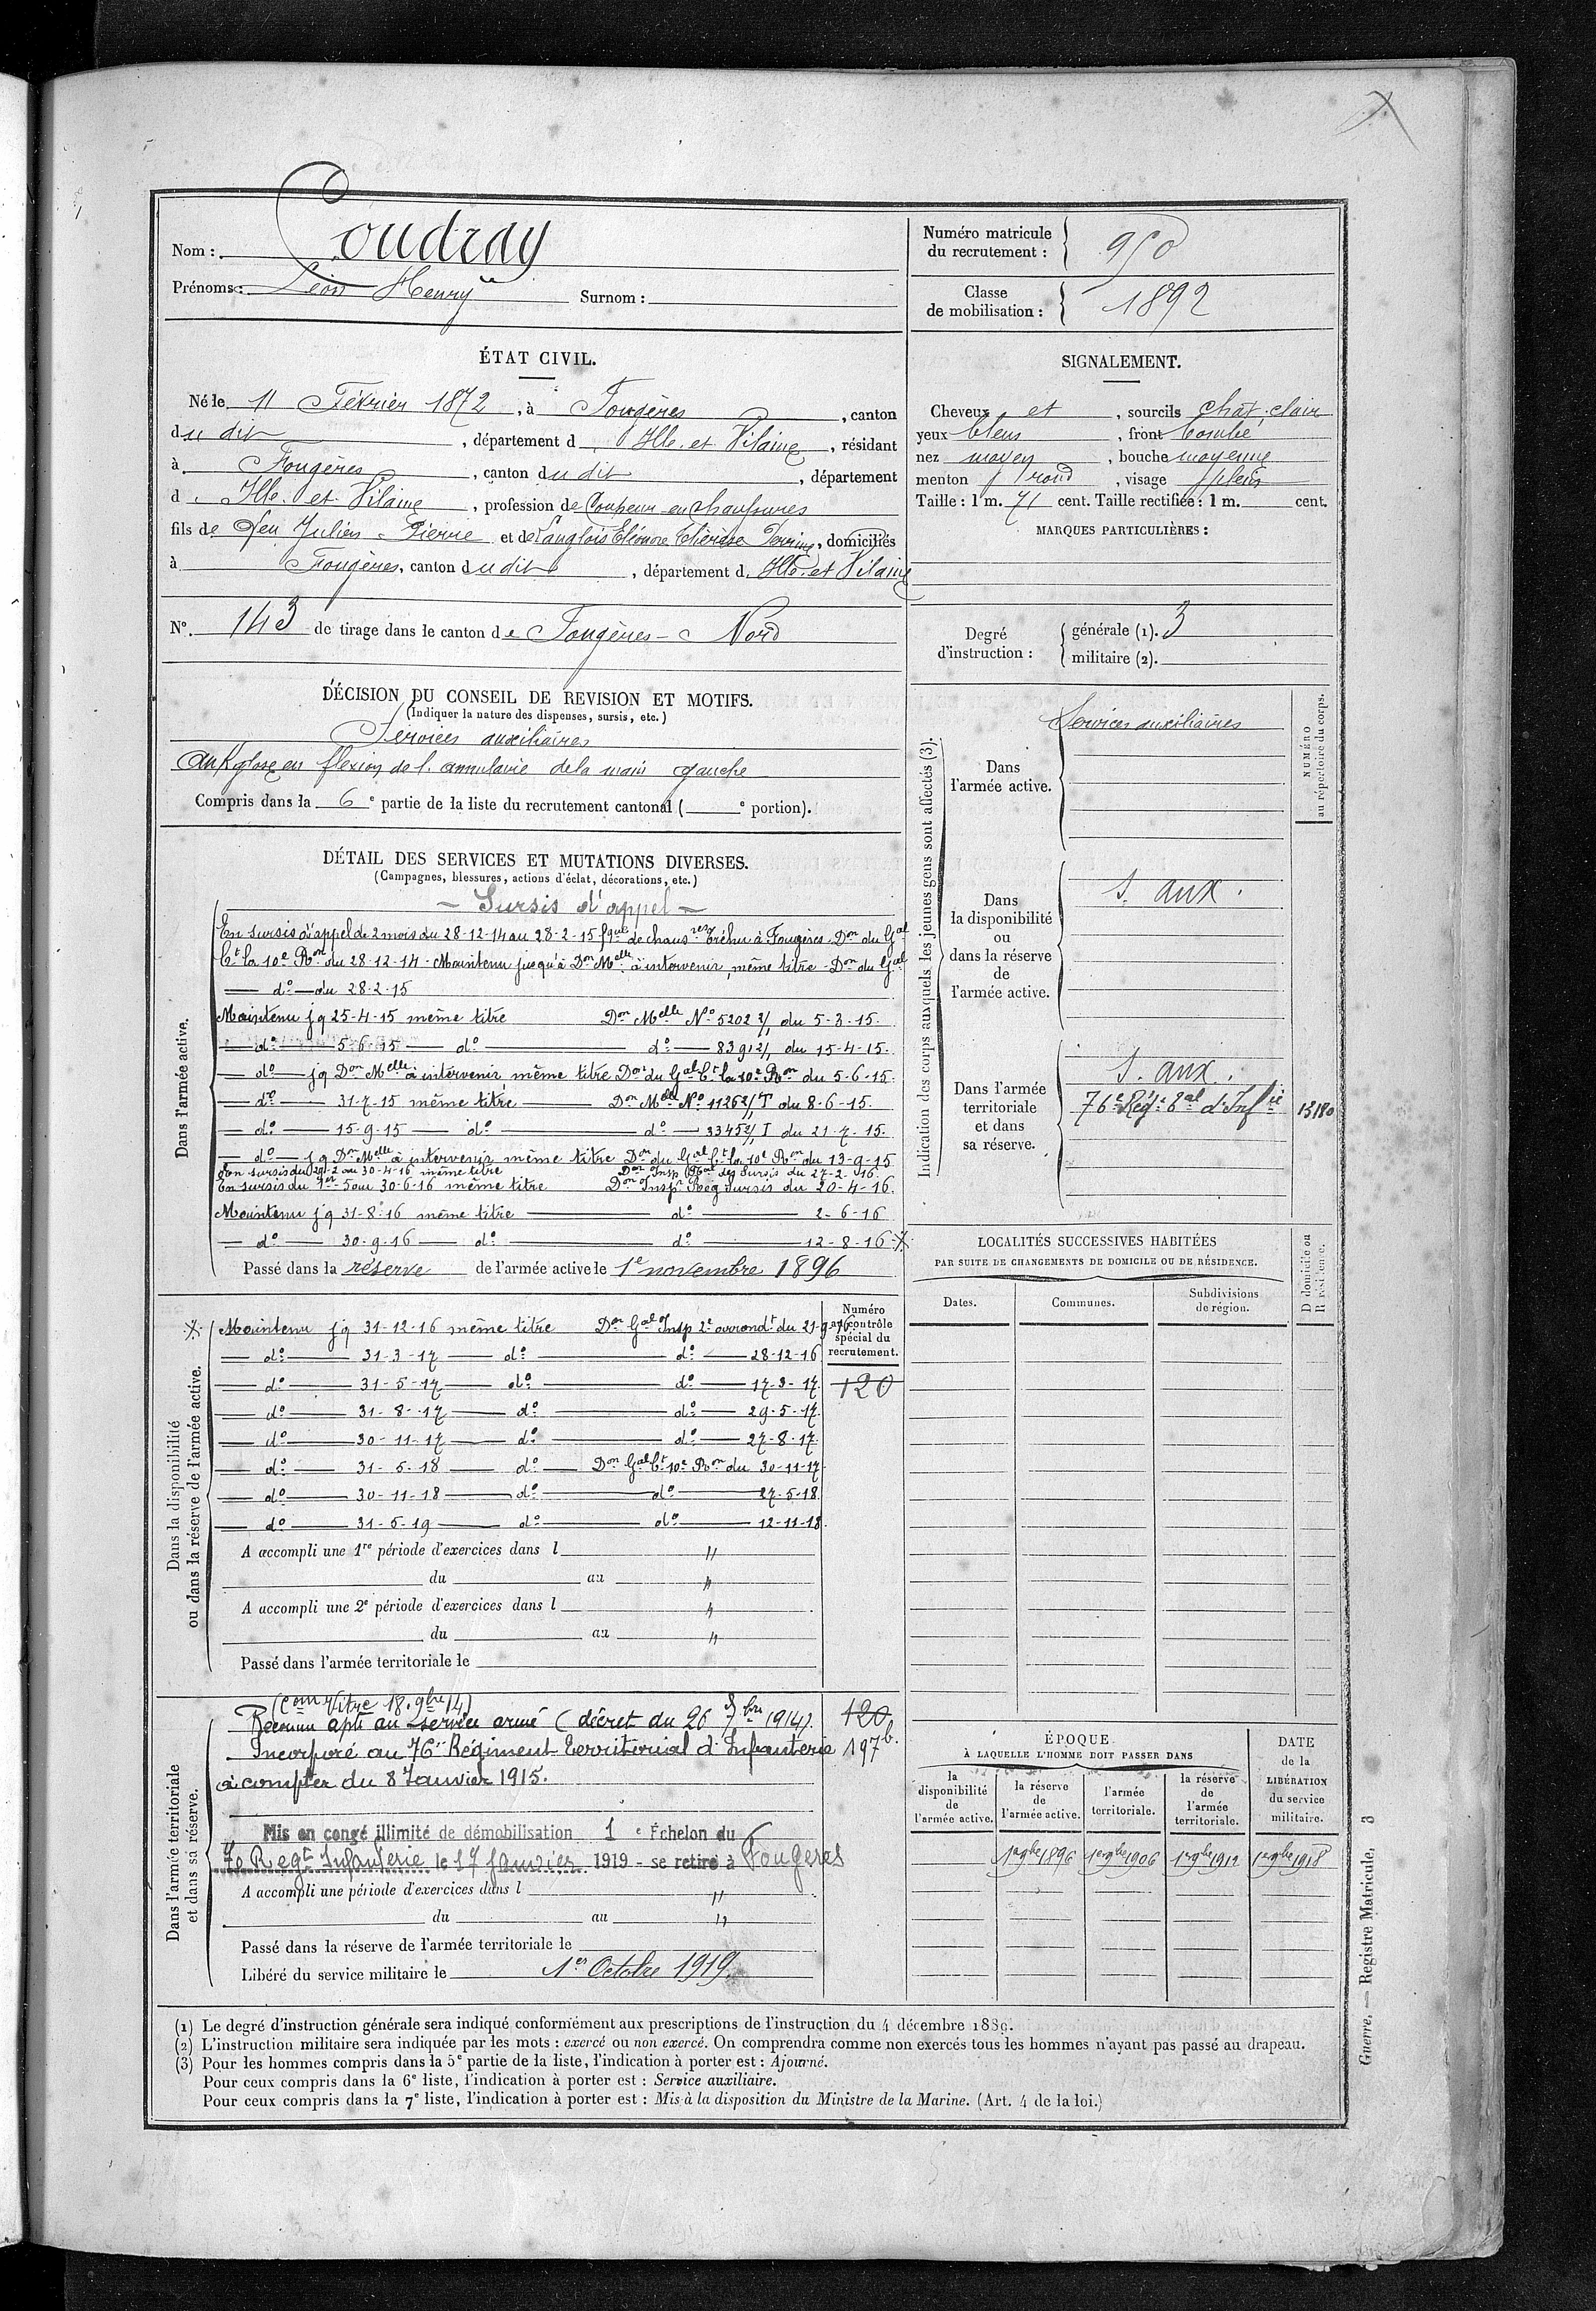 Nom : Coudray
Prénoms : Léon Henry Surnom :
Numéro matricule
du recrutement : 950
Classe
de mobilisation : 1892
ÉTAT CIVIL.
Né le 11 Février 1872, à Fougères, canton
du dit, département d Ille et Vilaine, résidant
à Fougères, canton du dit, département
d Ille et Vilaine, profession de Coupeur en chaussures
fils de feu Julien Pierre et de Langlois Eléonore Thérèse Perrine, domiciliés
à Fougères, canton du dit, département d Ille et Vilaine
N° 143 de tirage dans le canton de Fougères-Nord
SIGNALEMENT.
Cheveux et, sourcils chât. clair
yeux bleus, front bombé
nez moyen, bouche moyenne
menton rond, visage plein
Taille : 1 m. 71 cent. Taille rectifiée : 1 m. cent.
MARQUES PARTICULIÈRES :
Degré
d'instruction :
générale (1). 3
militaire (2).
DÉCISION DU CONSEIL DE REVISION ET MOTIFS.
(Indiquer la nature des dispenses, sursis, etc.)
Services auxiliaires
Ankylose en flexion de l'annulaire de la main gauche
Compris dans la 6e partie de la liste du recrutement cantonal ( e portion).
DÉTAIL DES SERVICES ET MUTATIONS DIVERSES.
(Campagnes, blessures, actions d'éclat, décorations, etc.)
Dans l'armée active.
— Sursis d'appel —
En sursis d'appel de 2 mois du 28-12-14 au 28-2-15 fque de chausres Tréhu à Fougères. Don du Gal
Ct la 10e Ron du 28-12-14 - Maintenu jusqu'à Don Melle à intervenir, même titre - Don du Gal
— do — du 28-2-15
Maintenu jq 25-4-15 même titre Don Melle No 5202 3/1 du 5-3-15.
— do — 5-6-15 — do — do — 8391 2/1 du 15-4-15.
— do — jq Don Melle à intervenir même titre Don du Gal Ct la 10e Ron du 5-6-15.
— do — 31-7-15 même titre — Don Melle No 11262/1T du 8-6-15.
— do — 15-9-15 — do — do — 33452/1 I du 21-7-15.
— do — jq Don Melle à intervenir même titre Don du Gal Ct la 10e Ron du 13-9-15
En sursis du 29-2 au 30-4-16 même titre Don Insp Gal des Sursis du 27-2-16.
En sursis du 1er-5 au 30-6-16 même titre Don Inspr Rég Sursis du 20-4-16.
Maintenu jq 31-8-16 même titre — do — 2-6-16
— do — 30-9-16 — do — do — 12-8-16 X
Passé dans la réserve de l'armée active le 1e novembre 1896
Dans la disponibilité
ou dans la réserve de l'armée active.
X Maintenu jq 31-12-16 même titre Don Gal Insp 2e arrondt du 21-9-16
— do — 31-3-17 — do — do — 28-12-16
— do — 31-5-17 — do — do — 17-3-17.
— do — 31-8-17 — do — do — 29-5-17.
— do — 30-11-17 — do — do — 27-8-17.
— do — 31-5-18 — do — Don Gal Ct 10e Ron du 30-11-17.
— do — 30-11-18 — do — do — 27-5-18.
— do — 31-5-19 — do — do — 12-11-18.
A accompli une 1re période d'exercices dans l "
du au "
A accompli une 2e période d'exercices dans l "
du au "
Passé dans l'armée territoriale le
Numéro
au contrôle
spécial du
recrutement.
120
Dans l'armée territoriale
et dans sa réserve.
(Com Vitré 18.9bre 14)
Reconnu apte au service armé (décret du 26 7bre 1914).
Incorporé au 76e Régiment Territorial d'Infanterie
à compter du 8 Janvier 1915.
120.
197b.
Mis en congé illimité de démobilisation 1e Échelon du
70 Regt Infanterie le 17 Janvier 1919 - se retire à Fougères
A accompli une période d'exercices dans l "
du au "
Passé dans la réserve de l'armée territoriale le
Libéré du service militaire le 1er Octobre 1919.
Indication des corps auxquels les jeunes gens sont affectés (3).
NUMÉRO
au répertoire du corps.
Dans
l'armée active.
Services auxiliaires
Dans
la disponibilité
ou
dans la réserve
de
l'armée active.
S. aux.
Dans l'armée
territoriale
et dans
sa réserve.
S. aux.
76e Régt tal d'Infie 13180
LOCALITÉS SUCCESSIVES HABITÉES
PAR SUITE DE CHANGEMENTS DE DOMICILE OU DE RÉSIDENCE.
Dates. Communes. Subdivisions
de région.
D domicile ou
R résidence.
ÉPOQUE
À LAQUELLE L'HOMME DOIT PASSER DANS
la
disponibilité
de
l'armée active.
la réserve
de
l'armée active.
l'armée
territoriale.
la réserve
de
l'armée
territoriale.
DATE
de la
LIBÉRATION
du service
militaire.
1er 9bre 1896 1er 9bre 1906 1er 9bre 1912 1er 9bre 1918
(1) Le degré d'instruction générale sera indiqué conformément aux prescriptions de l'instruction du 4 décembre 1889.
(2) L'instruction militaire sera indiquée par les mots : exercé ou non exercé. On comprendra comme non exercés tous les hommes n'ayant pas passé au drapeau.
(3) Pour les hommes compris dans la 5e partie de la liste, l'indication à porter est : Ajourné.
Pour ceux compris dans la 6e liste, l'indication à porter est : Service auxiliaire.
Pour ceux compris dans la 7e liste, l'indication à porter est : Mis à la disposition du Ministre de la Marine. (Art. 4 de la loi.)
Guerre. — Registre Matricule. 3